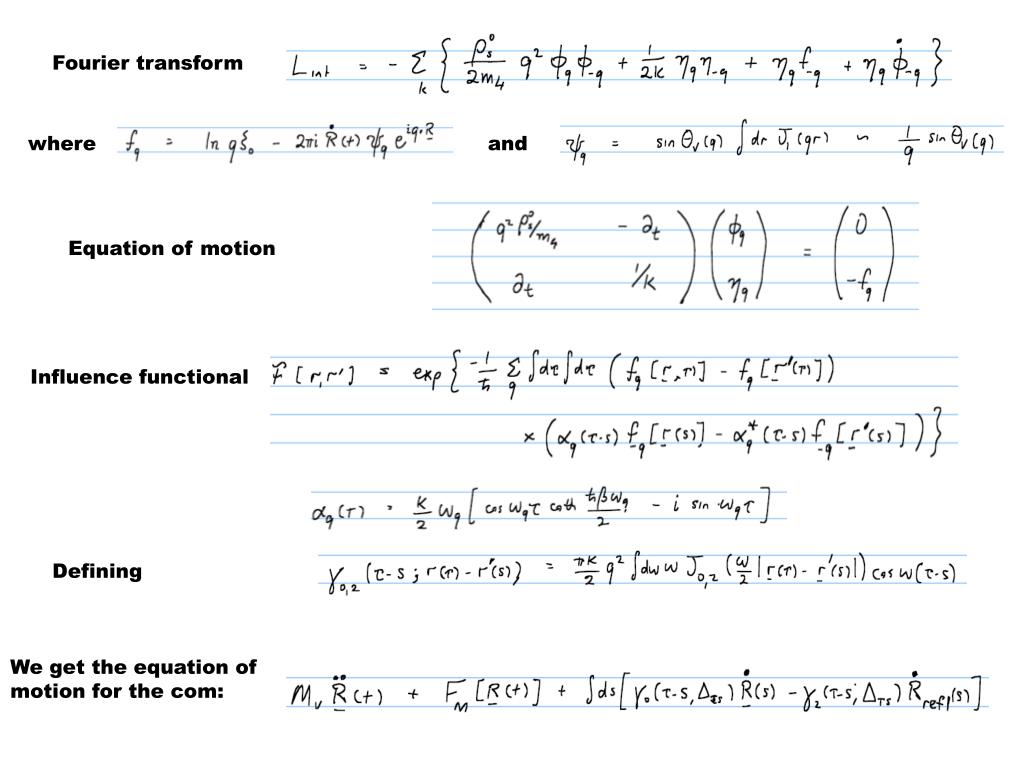 Fourier transform L_int = - Σ_k { ρ_s^0/2m_4 q² ϕ_q ϕ_-q + 1/2κ η_q η_-q + η_q f_-q + η_q ϕ̇_-q }
where f_q = ln qξ_0 - 2πi Ṙ(t) ψ_q e^{iq.R} and ψ_q = sin θ_v(q) ∫dr J_1(qr) ~ 1/q sin θ_v(q)
Equation of motion ( q² ρ_s^0/m_4 - ∂_t ; ∂_t 1/κ ) ( ϕ_q ; η_q ) = ( 0 ; -f_q )
Influence functional F[r,r'] = exp{ -1/ħ Σ_q ∫dτ∫dτ ( f_q[r,τ)] - f_q[r'(τ)])
× (α_q(τ-s) f_-q[r(s)] - α_q^*(τ-s) f_-q[r'(s)])}
α_q(τ) = κ/2 ω_q [ cos ω_q τ coth ħβω_q/2 - i sin ω_q τ ]
Defining γ_0,2 (τ-s ; r(τ) - r'(s)) = πκ/2 q² ∫dω ω J_0,2 (ω/2 |r(τ) - r'(s)|) cos ω(τ-s)
We get the equation of
motion for the com: M_v R̈(t) + F_M [R(t)] + ∫ds[γ_0(τ-s, Δ_τs) Ṙ(s) - γ_2(τ-s; Δ_τs) Ṙ_refl(s)]